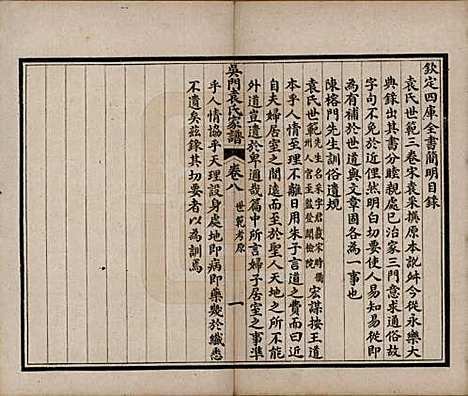 欽定四庫全書簡明目錄
袁氏世範三卷宋袁采撰原本訛舛今從永樂大
典錄出其書分睦親處已治家三門意求通俗故
字句不免於近俚然明白切要使人易知易從即
為有補於世道與文章固各為一事也
陳榕門先生訓俗遺規
袁氏世範先生名采字君載宋時衢州人官至監登聞檢院宏謀按王道
本乎人情至理不離日用朱子言道之費而曰近
自夫婦居室之間遠而至於聖人天地之所不能
外道豈遺於卑邇哉篇中所言婦子居室之事準
乎人情協乎天理設身處地即病即藥幾於纖悉
不遺矣茲錄其切要者以為訓焉
吳門袁氏家譜
卷八
世範考原
一